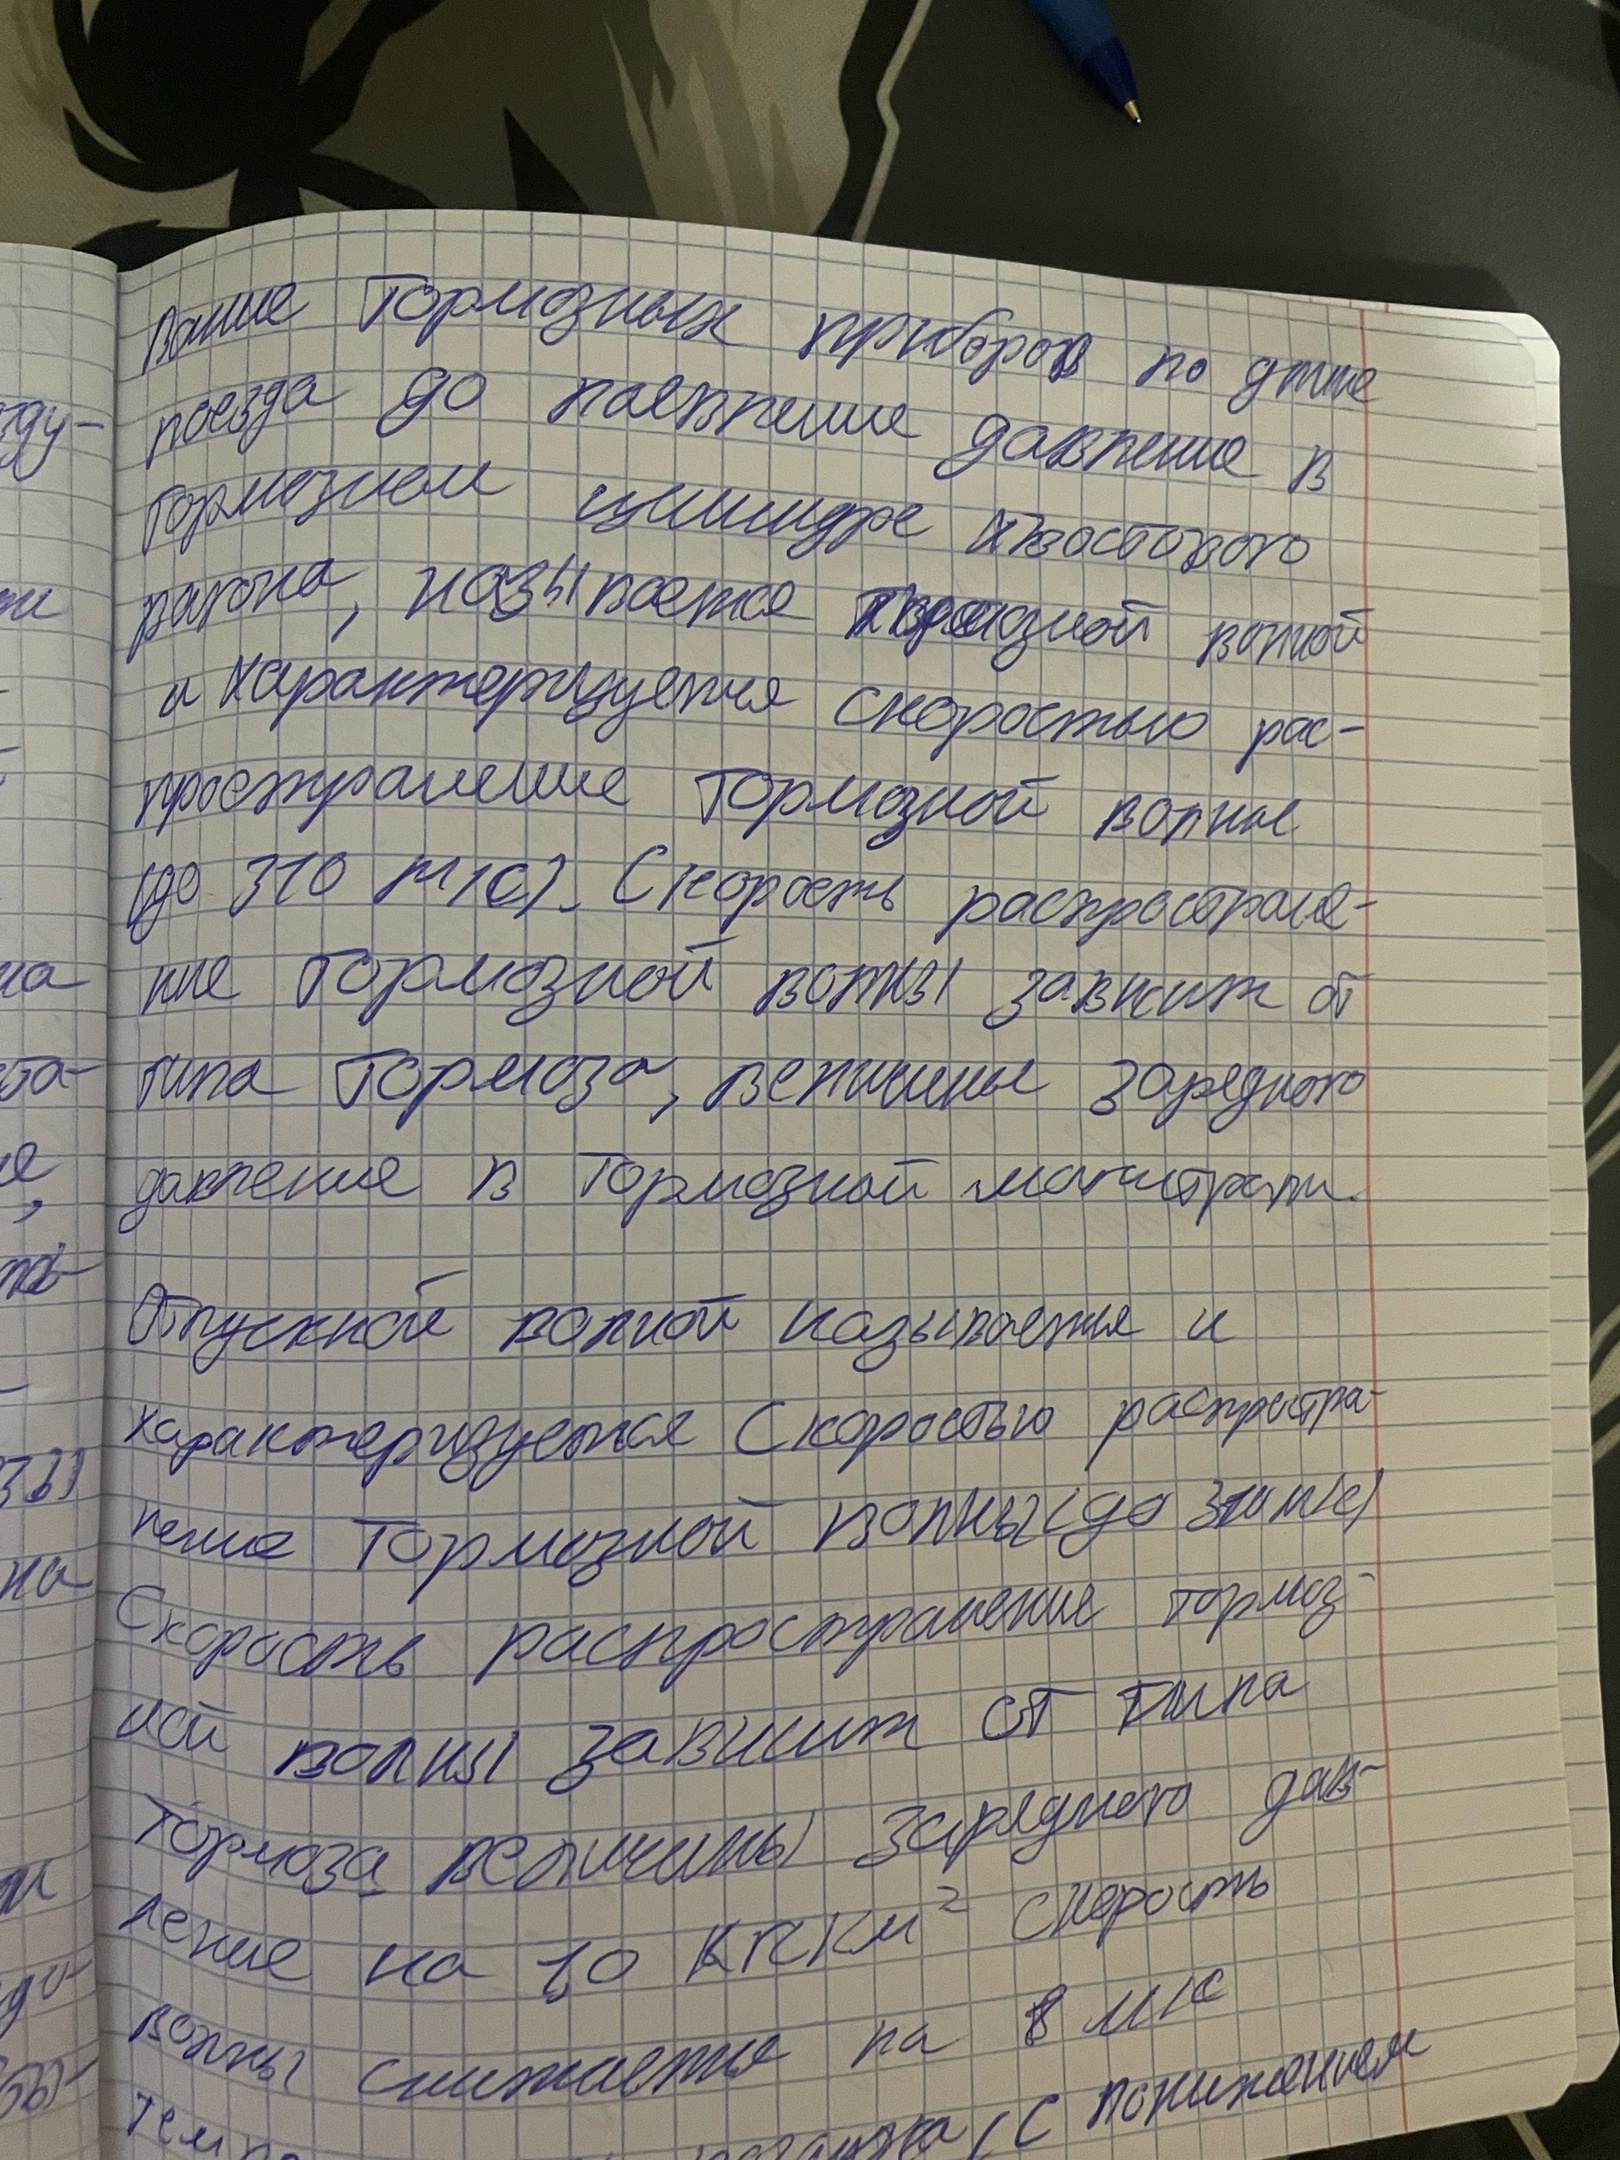 вание тормозных приборов по длине
поезда до появление давление в
тормозном цилиндре хвостового
вагона, называется тормозной волной
и характеризуется скоростью рас-
пространение тормозной волны
(до 310 м/с). Скорость распростране-
ние тормозной волны зависит от
типа тормоза, величины зарядного
давление в тормозной магистрали.
Отпускной волной называется и
характеризуется скоростью распростра-
нение тормозной волны (до 310 м/с)
Скорость распространение тормоз-
ной волны зависит от типа
тормоза величины зарядного дав-
ление на 10 скорость
волны снижается на 8 м/с
(С понижением